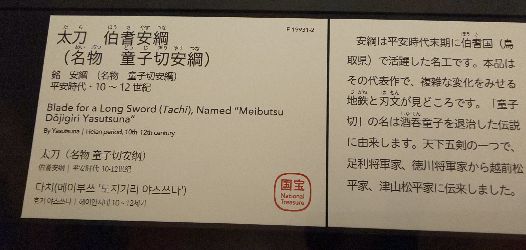 F-19931-2
太刀　伯耆安綱
（名物　童子切安綱）
銘　安綱　（名物　童子切安綱）
平安時代・10～12世紀
Blade for a Long Sword (Tachi), Named “Meibutsu
Dōjigiri Yasutsuna”
By Yasutsuna | Heian period, 10th-12th century
太刀（名物 童子切安綱）
伯耆安綱 | 平安时代 10-12世纪
다치(메이부쓰 '도지기리 야스쓰나')
호키 야스쓰나 | 헤이안시대 10～12세기
国宝
National
Treasure
安綱は平安時代末期に伯耆国（鳥
取県）で活躍した名工です。本品は
その代表作で、複雑な変化をみせる
地鉄と刃文が見どころです。「童子
切」の名は酒呑童子を退治した伝説
に由来します。天下五剣の一つで、
足利将軍家、徳川将軍家から越前松
平家、津山松平家に伝来しました。